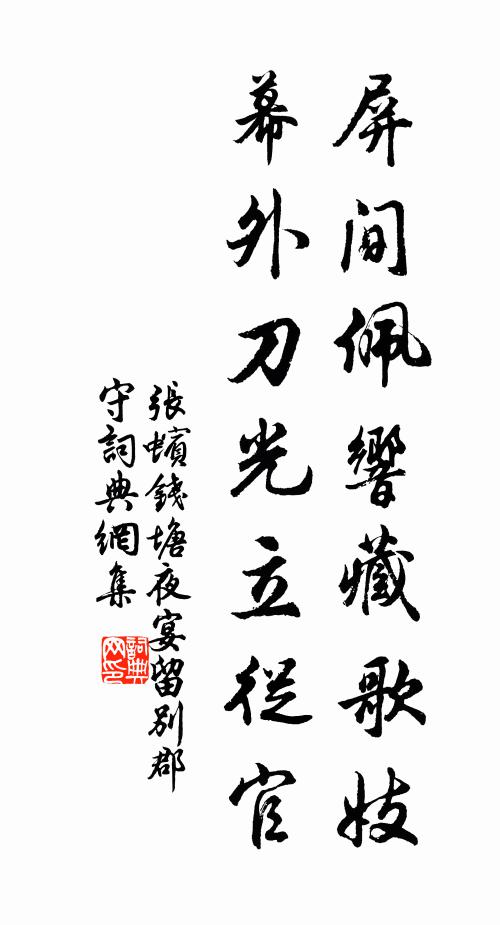 屏間佩響藏歌妓
幕外刀光立從官
張蠙錢塘夜宴留別郡
守詞典網集
詞典網印